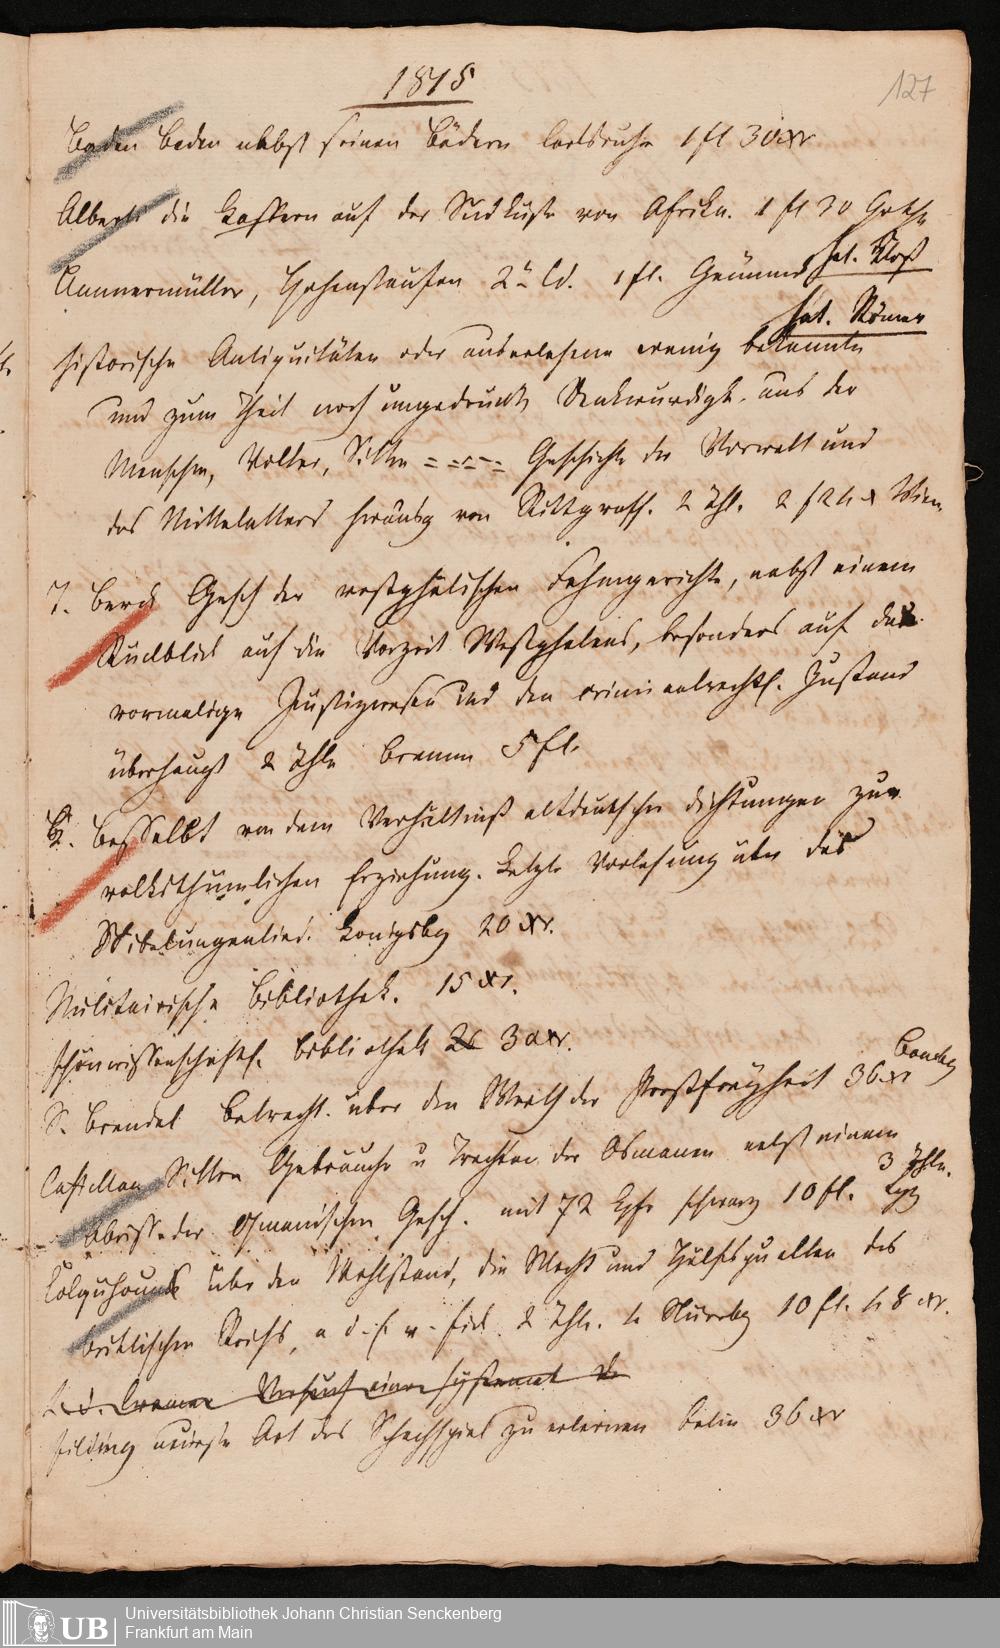 1815
127
Baden Baden nebst seinen Bädern Carlsruhe 1 fl 30 xr
Alberti die Kaffern auf der Südküste von Afrika. 1 fl 30 Gotha
Ammermüller, Hohenstaufen 2te Ed. 1 fl. Gemünd hat. Kloß
hat. Römer
historische Antiquitäten oder auserlesene wenig bekannte
und zum Theil noch ungedruckte Denkwürdigk. aus der
Menschen, Völker, Sitten Geschichte der Vorwelt und
des Mittelalters herausg von Rittgräff. 2 Thl. 2 f 24 x Wien
7. Berck Gesch der westphälischen Fehmgerichte, nebst einem
Rückblick auf die Vorzeit Westphalens, besonders auf das
vormalige Justizwesen und den criminalrechtl. Zustand
überhaupt 2 Thle Bremen 5 fl.
Besseldt von dem Verhältniß altdeutscher Dichtungen zur
volksthümlichen Erziehung. Letzte Vorlesung über das
Nibelungenlied. Konigsbg 20 xr.
Militairische Bibliothek. 15 xr.
schönwissenschaftl. Bibliothek 30 xr.
S. Brendel Betracht. über den Werth der Preßfreyheit 36 xr Bambg
Castellan Sitten Gebräuche u Trachten der Osmanen nebst einem
Abriss der Osmanischen Gesch. mit 72 Kpfr schwarz 10 fl. 3 Thle. Lpz
Colquhoun über den Wohlstand, die Macht und Hülfsquellen des
brittischen Reichs, a d. E v. Fick 2 Thle. 4 Nürnbg 10 fl. 48 xr.
Cramer Versuch einer systemat de
Fielding neueste Art das Schachspiel zu erlernen Berlin 36 xr
UB Universitätsbibliothek Johann Christian Senckenberg
Frankfurt am Main